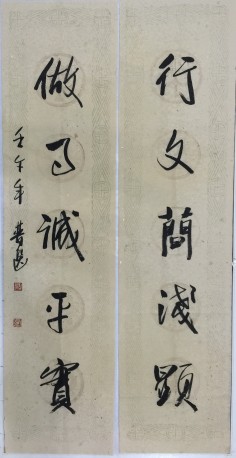 行文簡淺顯
做事誠平實
壬午年